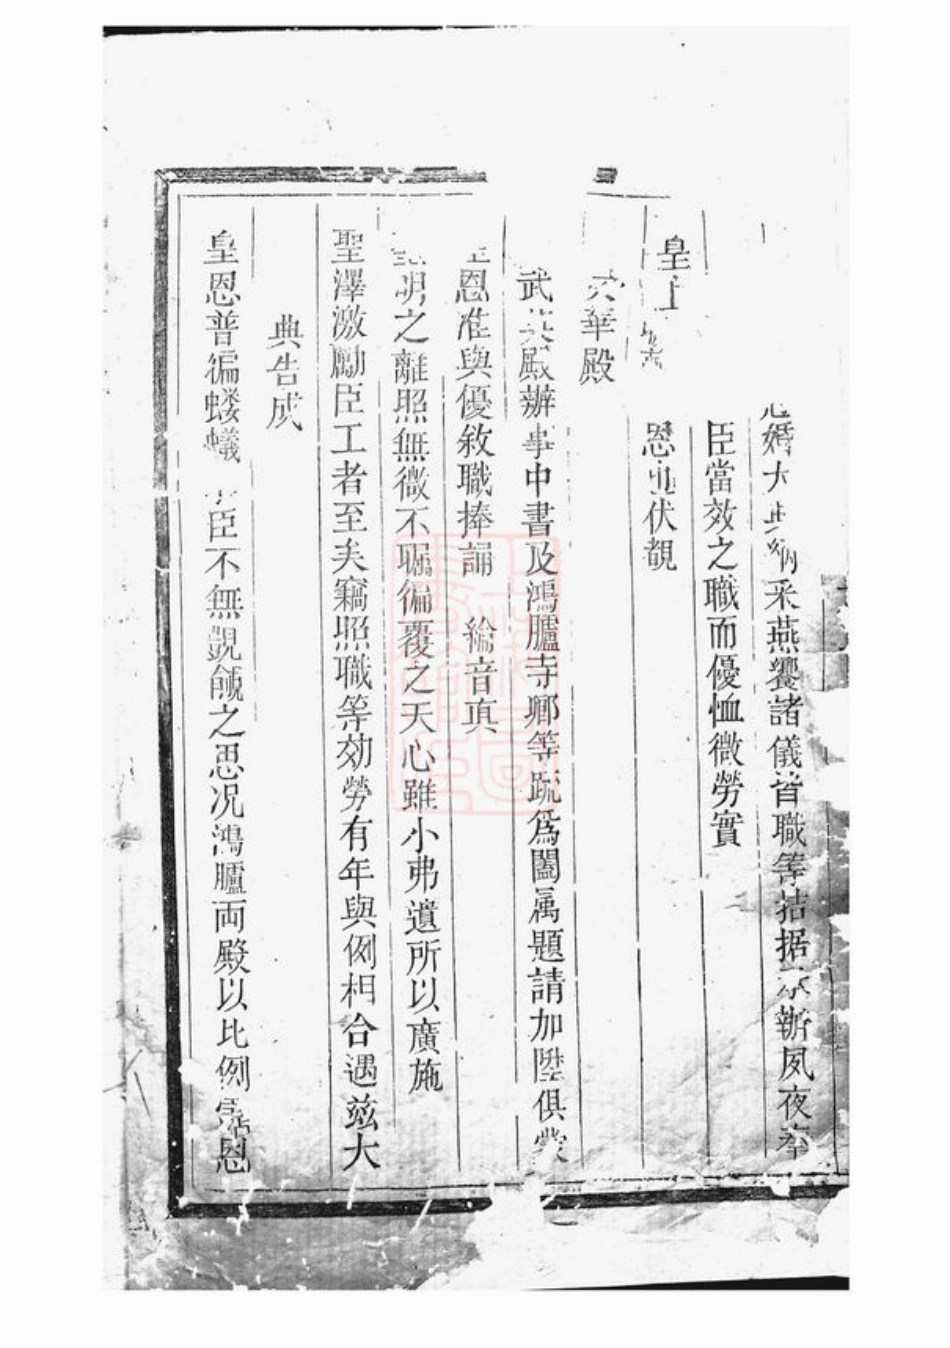 婚大 納采燕饗諸儀皆職等拮据承辦夙夜奉
臣當效之職而優恤微勞實
皇上
恩也伏覩
文華殿
武英殿辦事中書及鴻臚寺卿等疏爲闔属題請加陞俱蒙
皇恩准與優敘職捧誦 綸音真
聖明之離照無微不矚徧覆之天心雖小弗遺所以廣施
聖澤激勵臣工者至矣竊照職等効勞有年與例相合遇兹大
典告成
皇恩普徧螻蟻 臣不無覬覦之思况鴻臚両殿以比例 恩